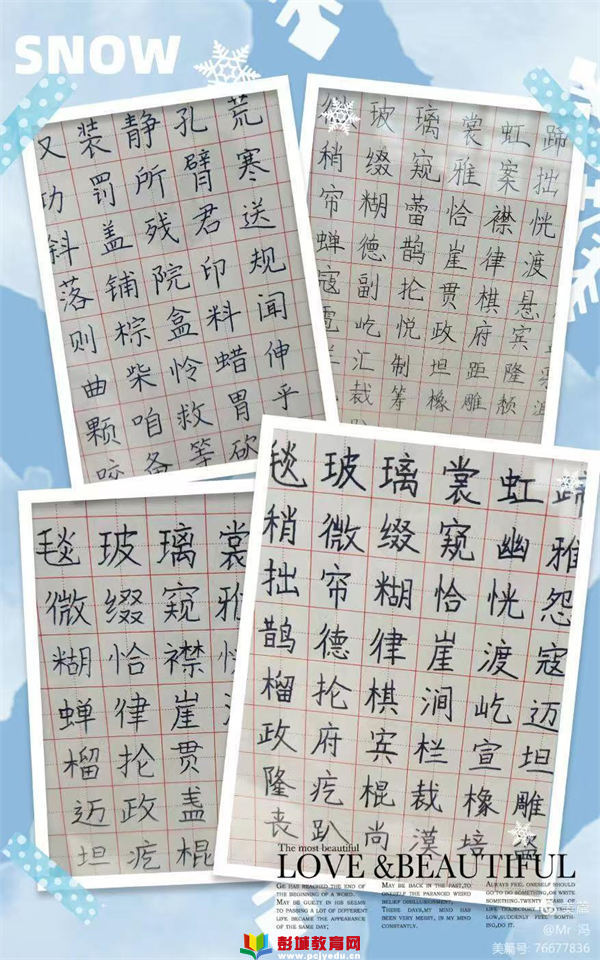 SNOW
又装静孔荒
功罚所臂寒
斜盖残君送
落铺院印规
则棕盒料闻
曲柴怜蜡伸
颗咱救胃乎
备等砍
微玻璃裳虹蹄
稍缀窥雅案拙
帘糊蕾恰襟恍
蝉德鹊崖律渡
寇副抡贯棋悬
屹悦政府宾
汇制坦距隆
裁筹橡雕颓
毯玻璃裳
微缀窥雅
糊恰襟
蝉律崖
榴抡贯
迈政盏
坦疙棍
毯玻璃裳虹蹄
稍微缀窥幽雅
拙帘糊恰恍怨
鹊德律崖渡寇
榴抡棋涧屹迈
政府宾栏宣坦
隆疙棍裁橡雕
丧趴尚漠培盔
The most beautiful
LOVE &BEAUTIFUL
GE HAS REACHED THE END OF
THE BEGINNING OF A WORD.
MAY BE GUILTY IN HIS SEEMS
TO PASSING A LOT OF DIFFERENT
LIFE BECAME THE APPEARANCE
OF THE SAME DAY,
MAY BE BACK IN THE PAST,TO
ONESELF THE PARANOID WEIRD
BELIEF DISILLUSIONMENT,
THESE DAYS,MY MIND HAS
BEEN VERY MESSY, IN MY MIND
CONSTANTLY.
ALWAYS FEEL ONESELF SHOULD
GO TO DO SOMETHING,OR WRITE
SOMETHING.TWENTY YEARS OF
@Mr 冯
美篇号 76677836
彭城教育网
www.pcjyedu.cn